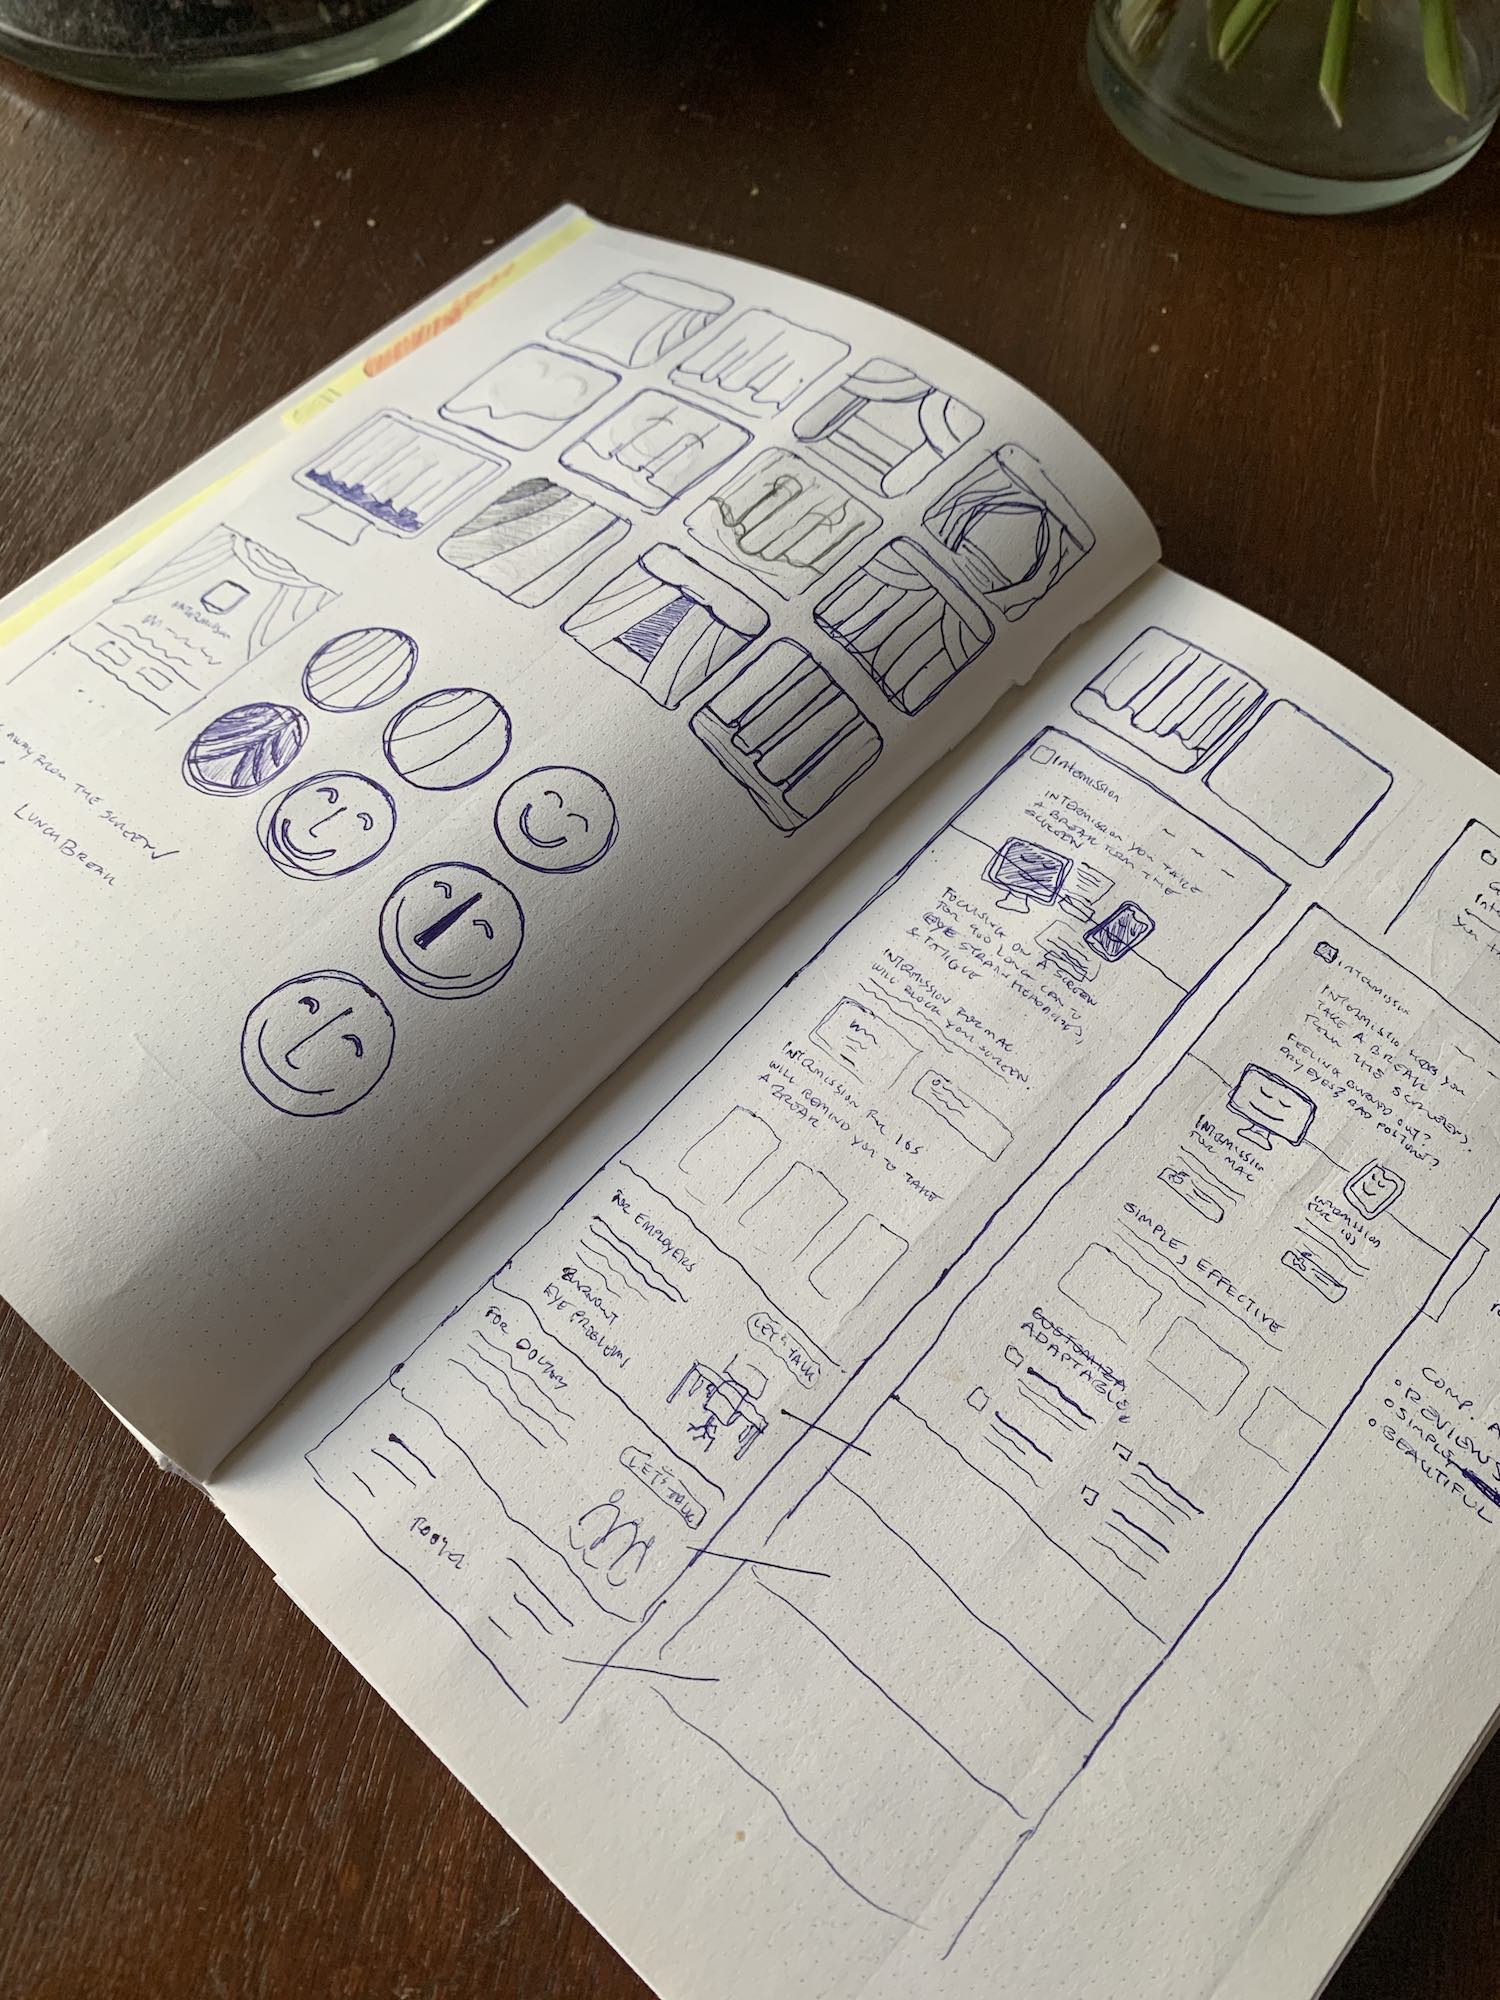 INTERMISSION
AWAY FROM THE SCREEN
LUNCH BREAK
Intermission
INTERMISSION YOU TAKE
A BREAK FROM THE
SCREEN
FOCUSING ON A SCREEN
FOR TOO LONG CAN
EYE STRAIN, HEADACHES,
& FATIGUE
INTERMISSION FOR MAC
WILL BLOCK YOUR SCREEN.
INTERMISSION FOR IOS
WILL REMIND YOU TO TAKE
A BREAK
FOR EMPLOYERS
BURNOUT
EYE PROBLEMS
LET'S TALK
FOR DOCTORS
LET'S TALK
FOOTER
INTERMISSION
INTERMISSION HELPS YOU
TAKE A BREAK
FROM THE SCREEN
FEELING BURNED OUT?
DRY EYES? BAD POSTURE?
INTERMISSION
FOR MAC
INTERMISSION
FOR IOS
SIMPLE, EFFECTIVE
ADAPTABLE
Inte
COMP. A
REVIEWS
SIMPLE
BEAUTIFUL